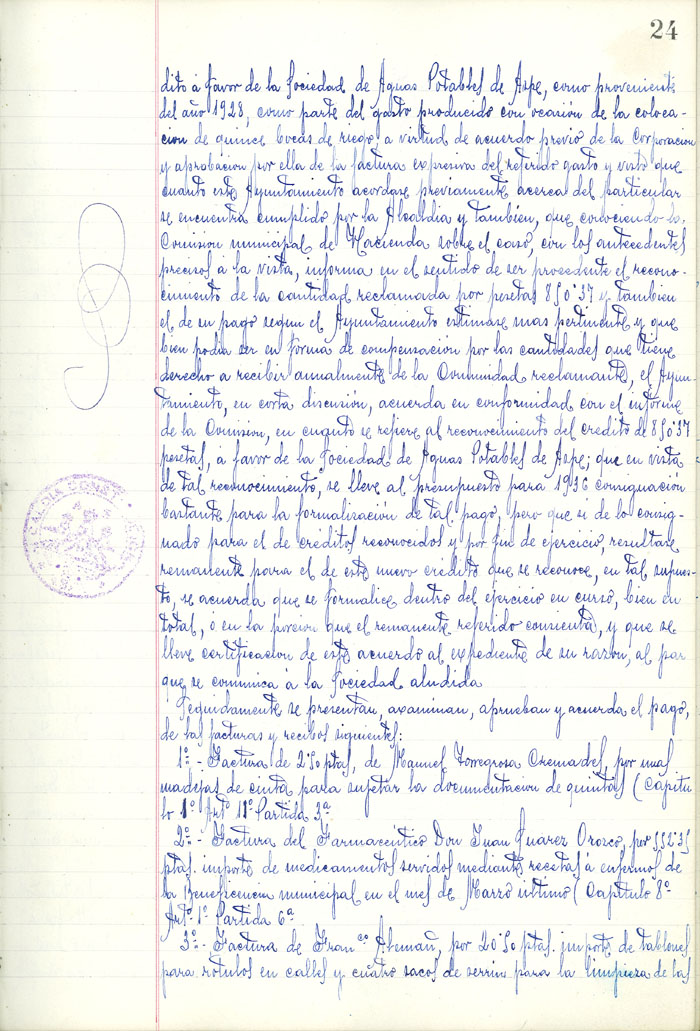 24
dito á favor de la Sociedad de Aguas Potables de Aspe, como proveniente
del año 1928, como parte del gasto producido con ocasión de la coloca-
cion de quince bocas de riego, a virtud de acuerdo previo de la Corporacion
y aprobacion por ella de la factura expresiva del referido gasto y visto que
cuanto este Ayuntamiento acordase previamente acerca del particular
se encuentra cumplido por la Alcaldia y tambien, que conociendo la
Comision municipal de Hacienda sobre el caso, con los antecedentes
precisos a la vista, informa en el sentido de ser procedente el recono-
cimiento de la cantidad reclamada por pesetas 850'37 y tambien
el de su pago segun el Ayuntamiento estimase mas pertinente y que
bien podia ser en forma de compensacion por las cantidades que tiene
derecho a recibir anualmente de la Comunidad reclamante, el Ayun-
tamiento, en corta discusión, acuerda en conformidad con el informe
de la Comision, en cuanto se refiere al reconocimiento del credito de 850'37
pesetas, a favor de la Sociedad de Aguas Potables de Aspe; que en vista
de tal reconocimiento, se lleve al presupuesto para 1936 consignación
bastante para la formalización de tal pago, pero que si de lo consig-
nado para el de créditos reconocidos y por fin de ejercicio, resultase
remanente para el de este nuevo crédito que se reconoce, en tal supues-
to, se acuerda que se formalice dentro del ejercicio en curso, bien en
total, o en la porcion que el remanente referido consienta, y que se
lleve certificacion de este acuerdo al expediente de su razon, al par
que se comunica á la Sociedad aludida
Seguidamente se presentan, axaminan, aprueban y acuerda el pago,
de las facturas y recibos siguientes:
1º.- Factura de 2'50 ptas, de Manuel Torregrosa Cremades, por unas
madejas de cinta para sujetar la documentacion de quintas (Capitu
lo 1º Artº 11º Partida 3ª
2º.- Factura del Farmacéutico Don Juan Suarez Orozco, por 552'35
ptas. importe de medicamentos servidos mediante recetas á enfermos de
la Beneficencia municipal en el mes de Marzo ultimo (Capitulo 8º
Artº. 1º Partida 6ª
3º.- Factura de Franco Alemañ, por 20'50 ptas. importe de tablones
para rotulos en calles y cuatro sacos de serrin para la limpieza de las